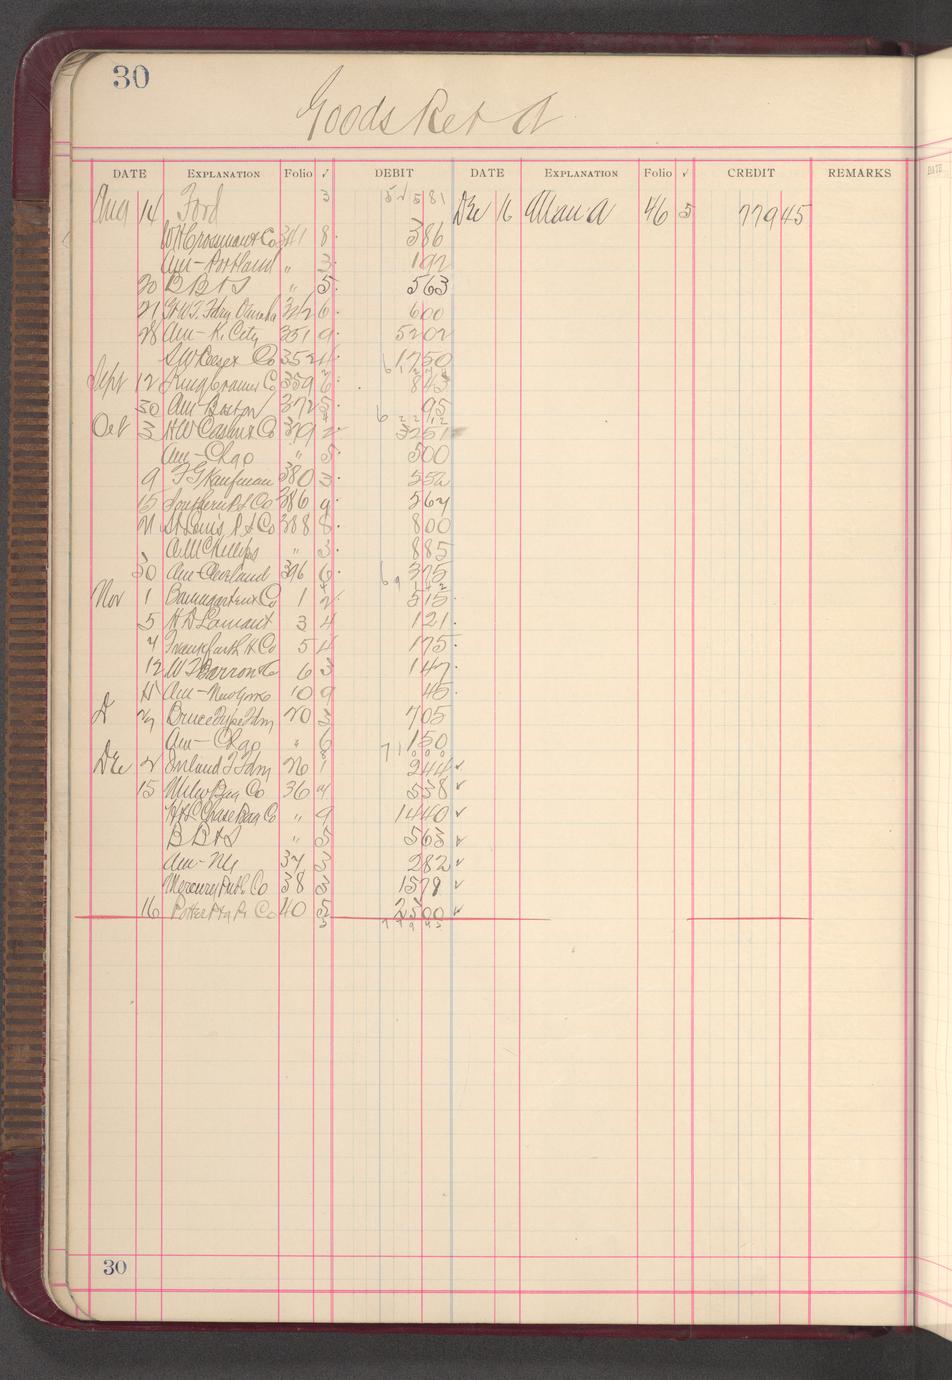 30
Goods Ret A
DATE EXPLANATION Folio √ DEBIT DATE EXPLANATION Folio √ CREDIT REMARKS
Aug 14 Ford 3 52581 Dec 16 46 5 77945
341 8 386
Am-Portland " 3 192
20 B B & S " 5 563
21 Omaha 6 600
28 Am-K. City 351 9 5202
Co 352 4 1750
Sept 12 King Co 359 6 843
30 Am-Boston 372 5 95
Oct 3 H W & Co 379 2 3251
Am-Chgo " 5 500
9 F G Kaufman 380 3 552
15 Southern P S Co 386 9 564
21 St Louis P S Co 388 8 800
A M Phillips " 3 885
30 Am-Cleveland 396 6 375
Nov 1 Co 1 2 515
5 H D Lamant 3 4 121
7 Frankfurth H Co 5 4 175
12 W F Barron & Co 6 3 147
Am-New York 10 9 45
20 3 705
Am-Chgo " 6 150
Dec 2 Inland T Fdry 26 1 244 √
15 Milw Bag Co 36 538 √
Chase Bag Co " 9 1440 √
B B & S " 5 563 √
Am-NY 37 3 282 √
Mercury Pub Co 38 3 1579 √
16 Potter Co 40 5 2500 √
30